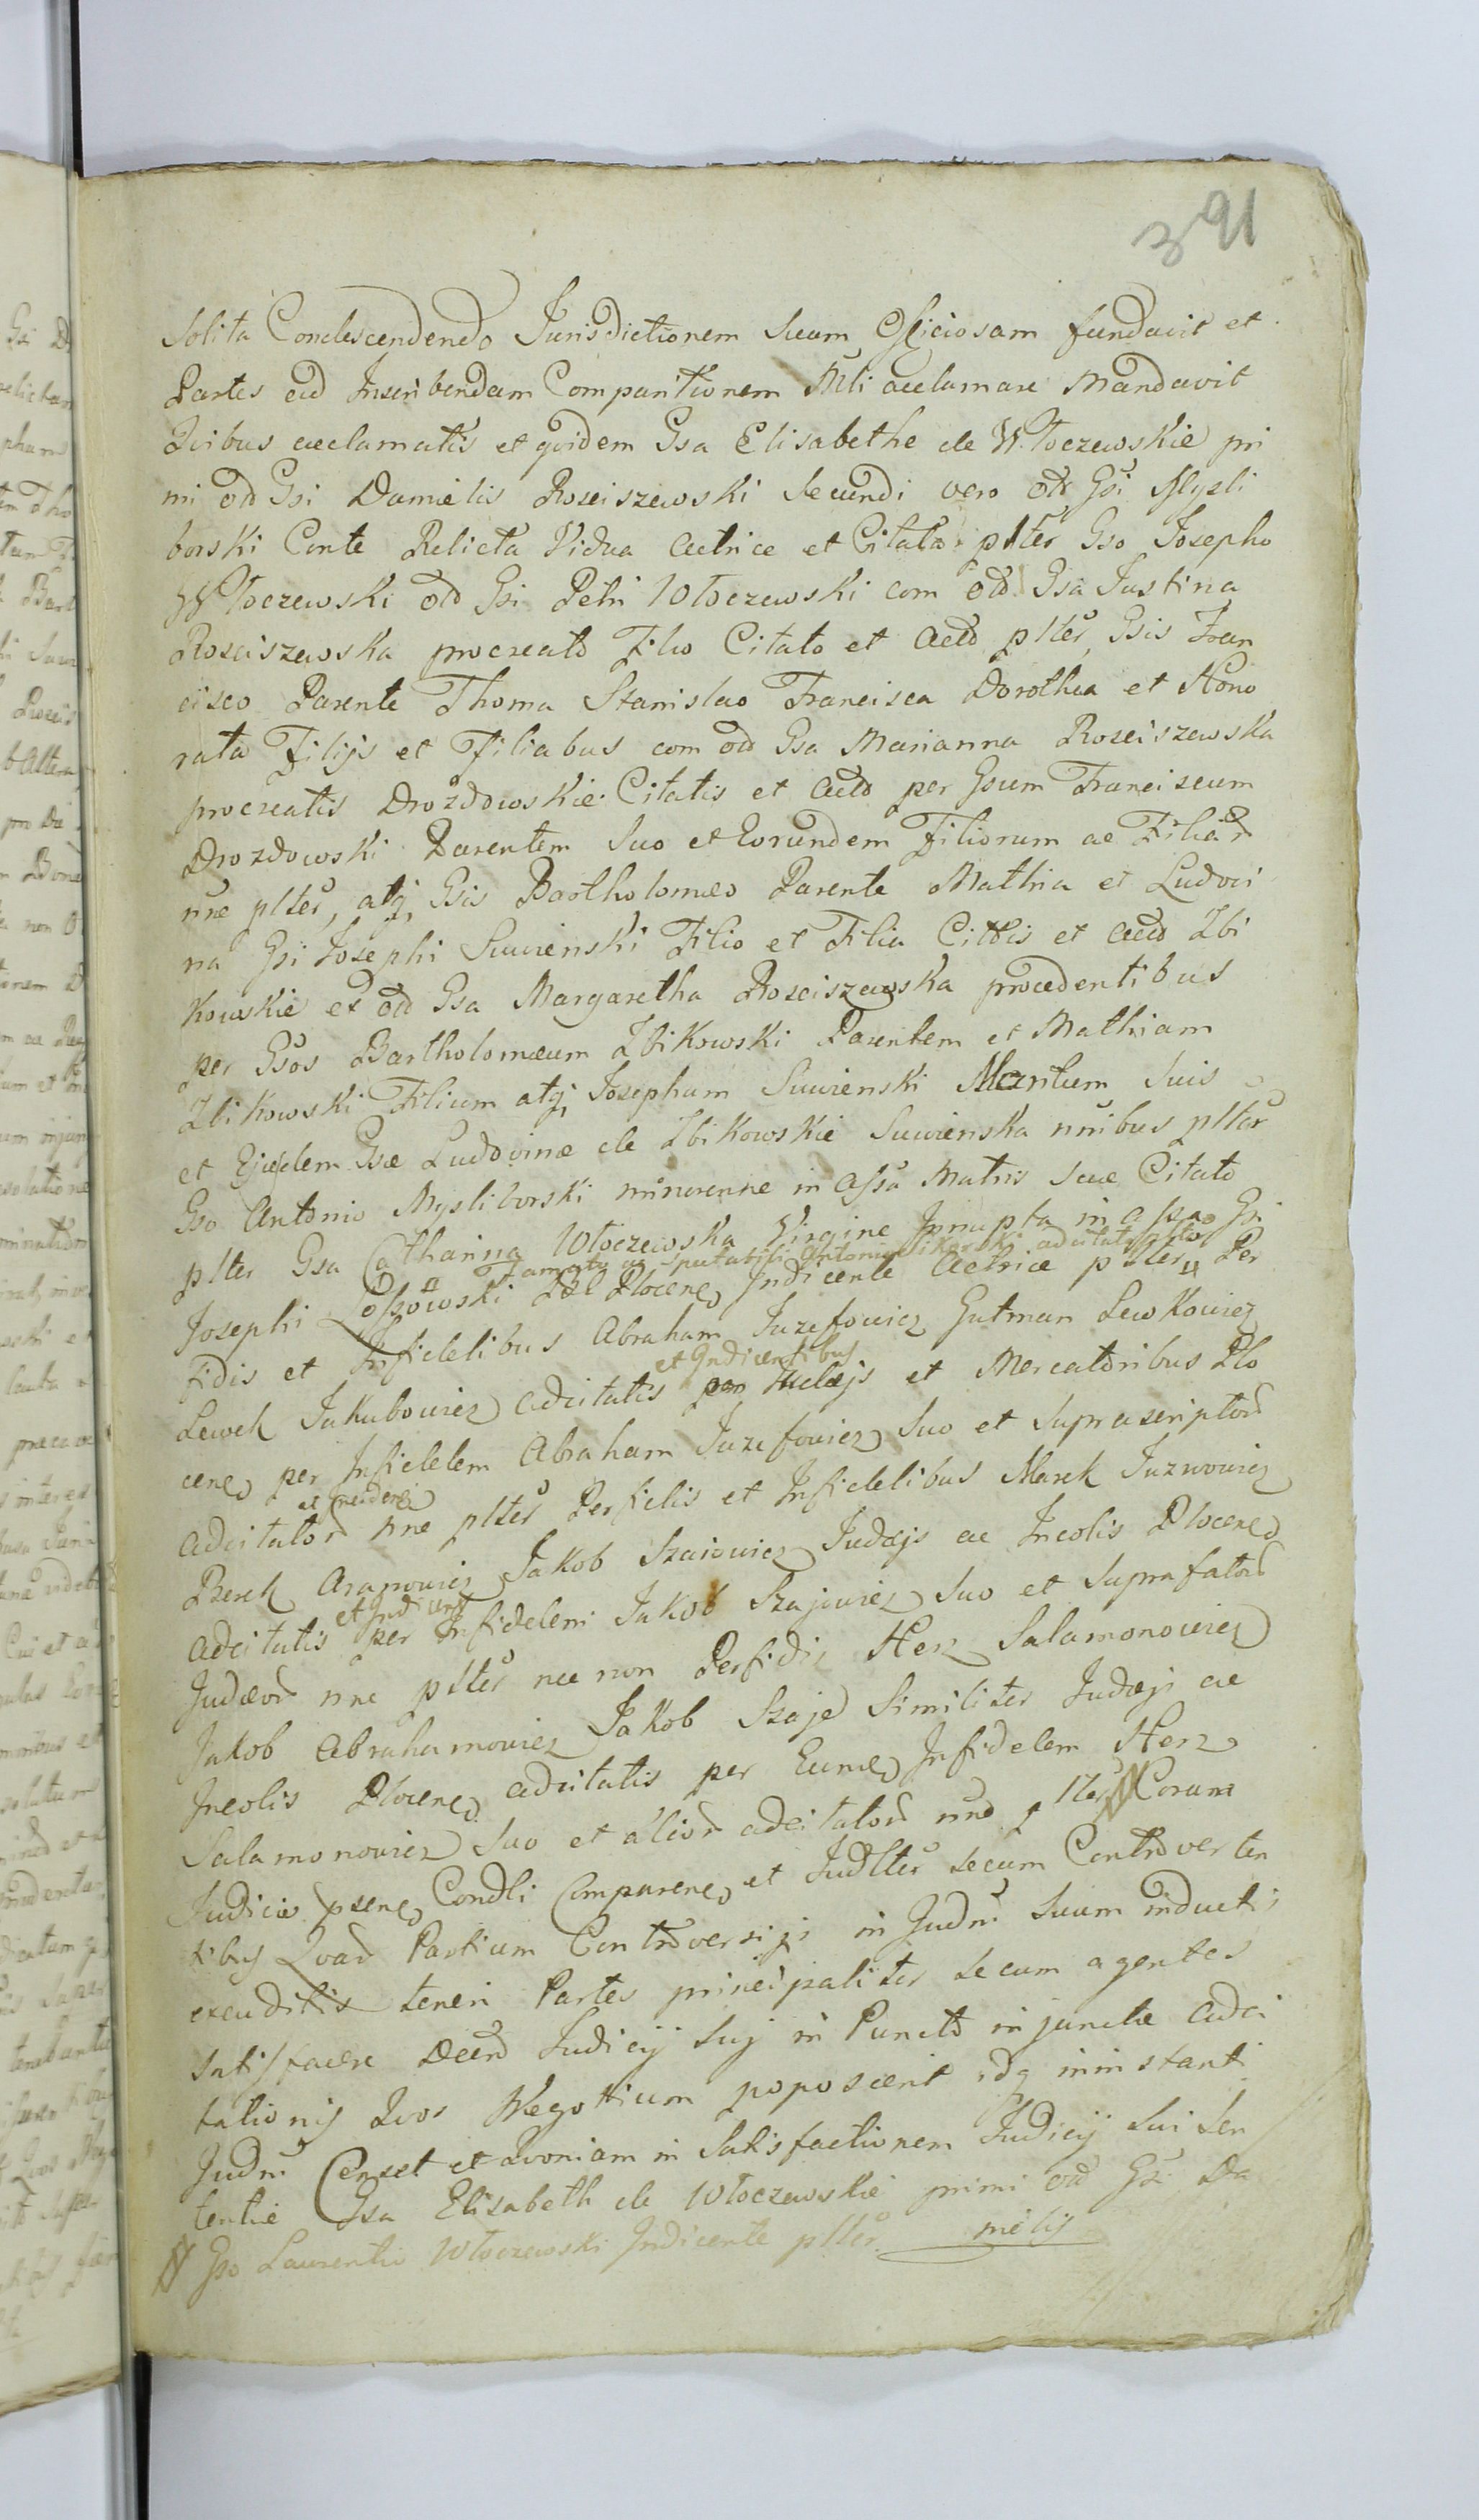 391
Solita Condescendendo Jurisdictionem Suam Officiosam fundavit et
Partes ad Inscribendam Comparitionem Mli acclamare Mandavit
Qvibus acclamatis et qvidem Gsa Elisabethe de Wloczewskie pri
mi od Gsi Damielis Rosciszewski Secundi vero od Gsi Mysli
borski Conte Relicta Vidua Actrice et Citata plter Gso Josepho
Wloczewski od Gsi Petri Wloczewski com od Gsa Justina
Rosciszewska procreato Filio Citato et Acto plter, Gsis Fran
cisco Parente Thoma Stanislao Francisca Dorothea et Hono
rata Filijs et Filiabus com od Gsa Marianna Rosciszewska
procreatis Drozdowskie Citatis et Acto per Gsum Franciscum
Drozdowski Parentem Suo et Eorundem Filiorum ac Filiar
nne plter, atq Gsis Bartholomeo Parente Mathia et Ludovi
na Gsi Josephi Suvienski Filio et Filia Cittis et Acto Zbi
kowskie ex od Gsa Margaretha Rosciszewska procedentibus
per Gsos Bartholomeum Zbikowski Parentem et Mathiam
Zbikowski Filium atq Josephum Suvienski Maritum Suis
et Ejusdem Gsæ Ludovinæ de Zbikowskie Suvienska nnibus plter
Gso Antonio Mysliborski minorenne in assa Matris Suæ Citato
plter Gsa Catharina Wloczewska Virgine Innupta in assa Gsi
Famato ac Spectabili Antonio adcitato plter
Josephi Plocen Indicente Actrice plter Per
fidis et Infidelibus Abraham Juzefowicz Gutman Lewkowicz
et Indicentibus
Lewek Jakubowicz adcitatis Judæjs et Mercatoribus Plo
cen per Infidelem Abraham Juzefowicz Suo et Suprascriptor
adcitator nne plter Perfidis et Infidelibus Marek
Berek Jakob Szaiowicz Judæjs ac Incolis Plocen
et Indicent
adcitatis per Infidelem Jakob Szajowicz Suo et Suprafator
Judæor nne plter nec non Perfidis Herz Salamonowicz
Jakob Abrahamowicz Jakob Szaje Similiter Judæjs ac
Incolis Plocen adcitatis per Eund Infidelem Herz
Salamonowicz Suo et alior adcitator nne plter Coram
Judicio psene Condli Comparen et Judlter secum Controverten
tibus Qvar Partium Controversijs in Judm Suum inductis
exauditis teneri Partes principaliter secum agentes
Satisfacere Decto Judicij Suj in Puncto injunctæ adci
tationis Qvos Negotium poposcerit idq in instanti
Judm Censet et qvoniam in Satisfactionem Judicij Sui Sen
tentiæ Gsa Elisabeth de Wloczewskie primi od Gsi Da
mielis
Gso Laurentio Wloczewski Indicente plter